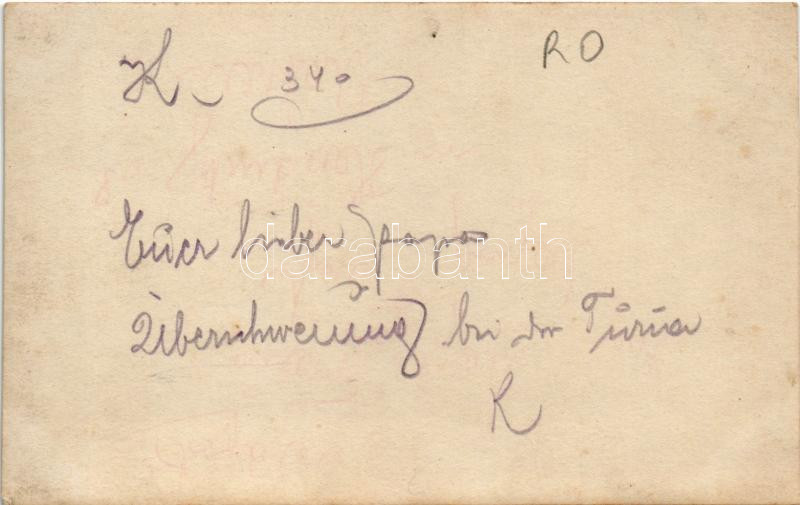 RO
K. 340
Euer lieber papa
darabanth
Überschwemung bei der Turia
K